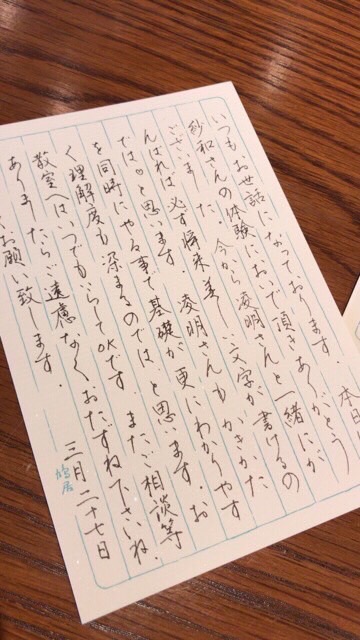 いつもお世話になっております。本日
紗和さんの体験においで頂きありがとう
ございました。今から凌明さんと一緒にが
んばれば必ず将来美しい文字が書けるの
ではと思います。凌明さんもかきかた
を同時にやる事で基礎が更にわかりやす
く理解度も深まるのではと思います。お
教室へはいつでもいらしてOKです。またご相談等
ありましたらご遠慮なくおたずね下さいね。
お願い致します。
三月二十七日
鳩居